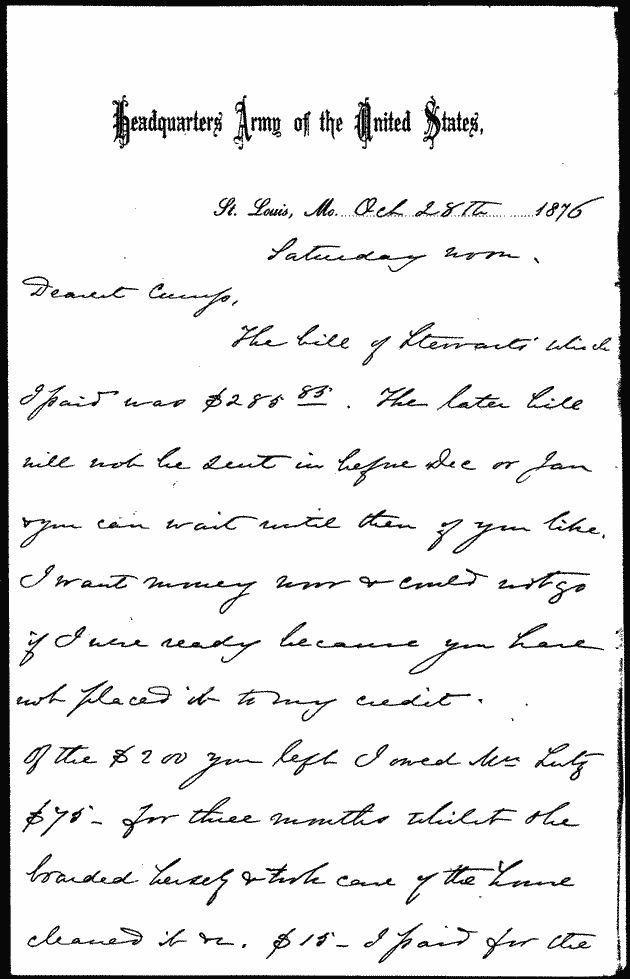 Headquarters Army of the United States,
St. Louis, Mo. Oct 28th 1876
Saturday noon.
Dearest Cump,
The bill of Stewarts' which
I paid was $285 85. The later bill
will not be sent in before Dec or Jan
& you can wait until then if you like.
I want money now & could not go
if I were ready because you have
not placed it to my credit.
Of the $200 you left I owed Mrs Lutz
$75- for three months whilst she
boarded herself & took care of the house
cleaned it &c. $15- I paid for the